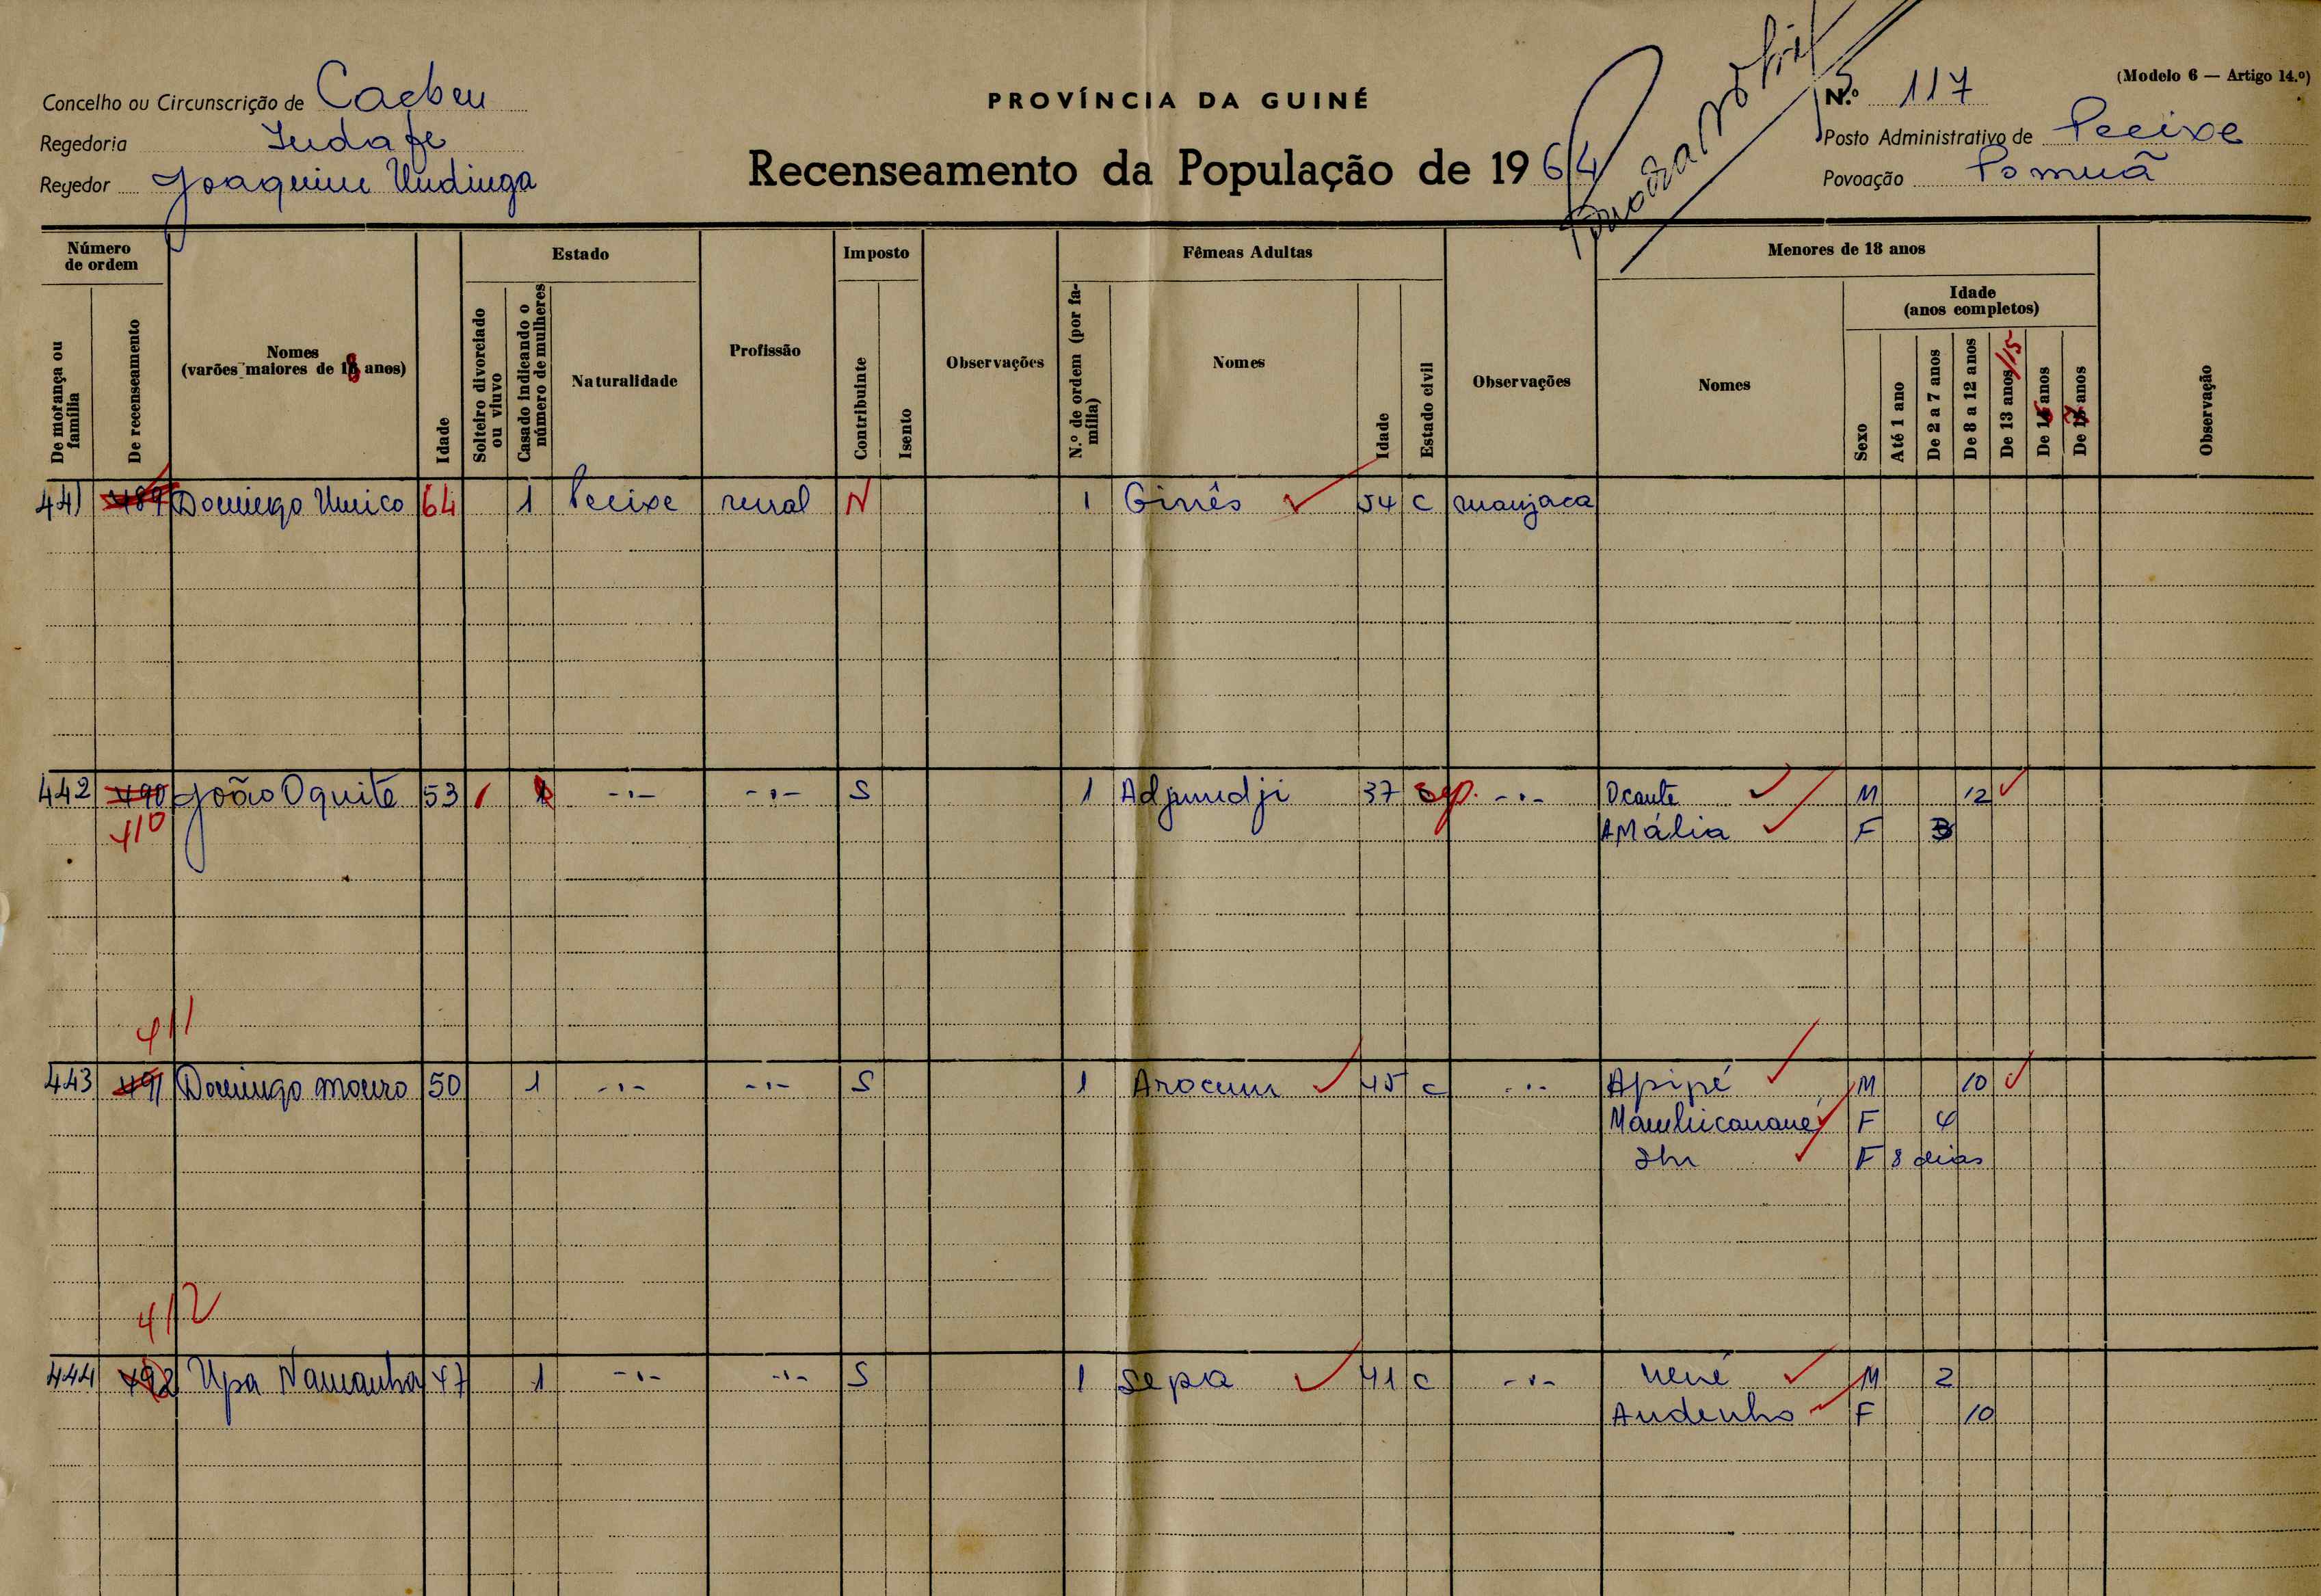 (Modelo 6 — Artigo 14.º)
Concelho ou Circunscrição de Cacheu
PROVÍNCIA DA GUINÉ
N.º 117
Regedoria Indafe
Posto Administrativo de Pecixe
Regedor Joaquim Undinga
Recenseamento da População de 1964
Povoação Pomuã
Número de ordem
Estado
Imposto
Fêmeas Adultas
Menores de 18 anos
De morança ou família
De recenseamento
Nomes
(varões maiores de 18 anos)
Idade
Solteiro divorciado ou viuvo
Casado indicando o número de mulheres
Naturalidade
Profissão
Contribuinte
Isento
Observações
N.º de ordem (por família)
Nomes
Idade
Estado civil
Observações
Nomes
Sexo
Idade
(anos completos)
Até 1 ano
De 2 a 7 anos
De 8 a 12 anos
De 13 anos/15
De 16 anos
De 17 anos
Observação
441 489 Domingo Unico 64 1 Pecixe rural N 1 Ginês 54 c manjaca
442 490 João Oquite 53 1 -·- -·- S 1 Adjumdji 37 sep. -·- Ocante M 12
410 Amália F 3
411
443 491 Domingo mouro 50 1 -·- -·- S 1 Arocum 45 c -·- Apipé M 10
F 4
F 8 dias
412
444 492 Upa Namanha 47 1 -·- -·- S 1 Sepa 41 c -·- nené M 2
Andenho F 10